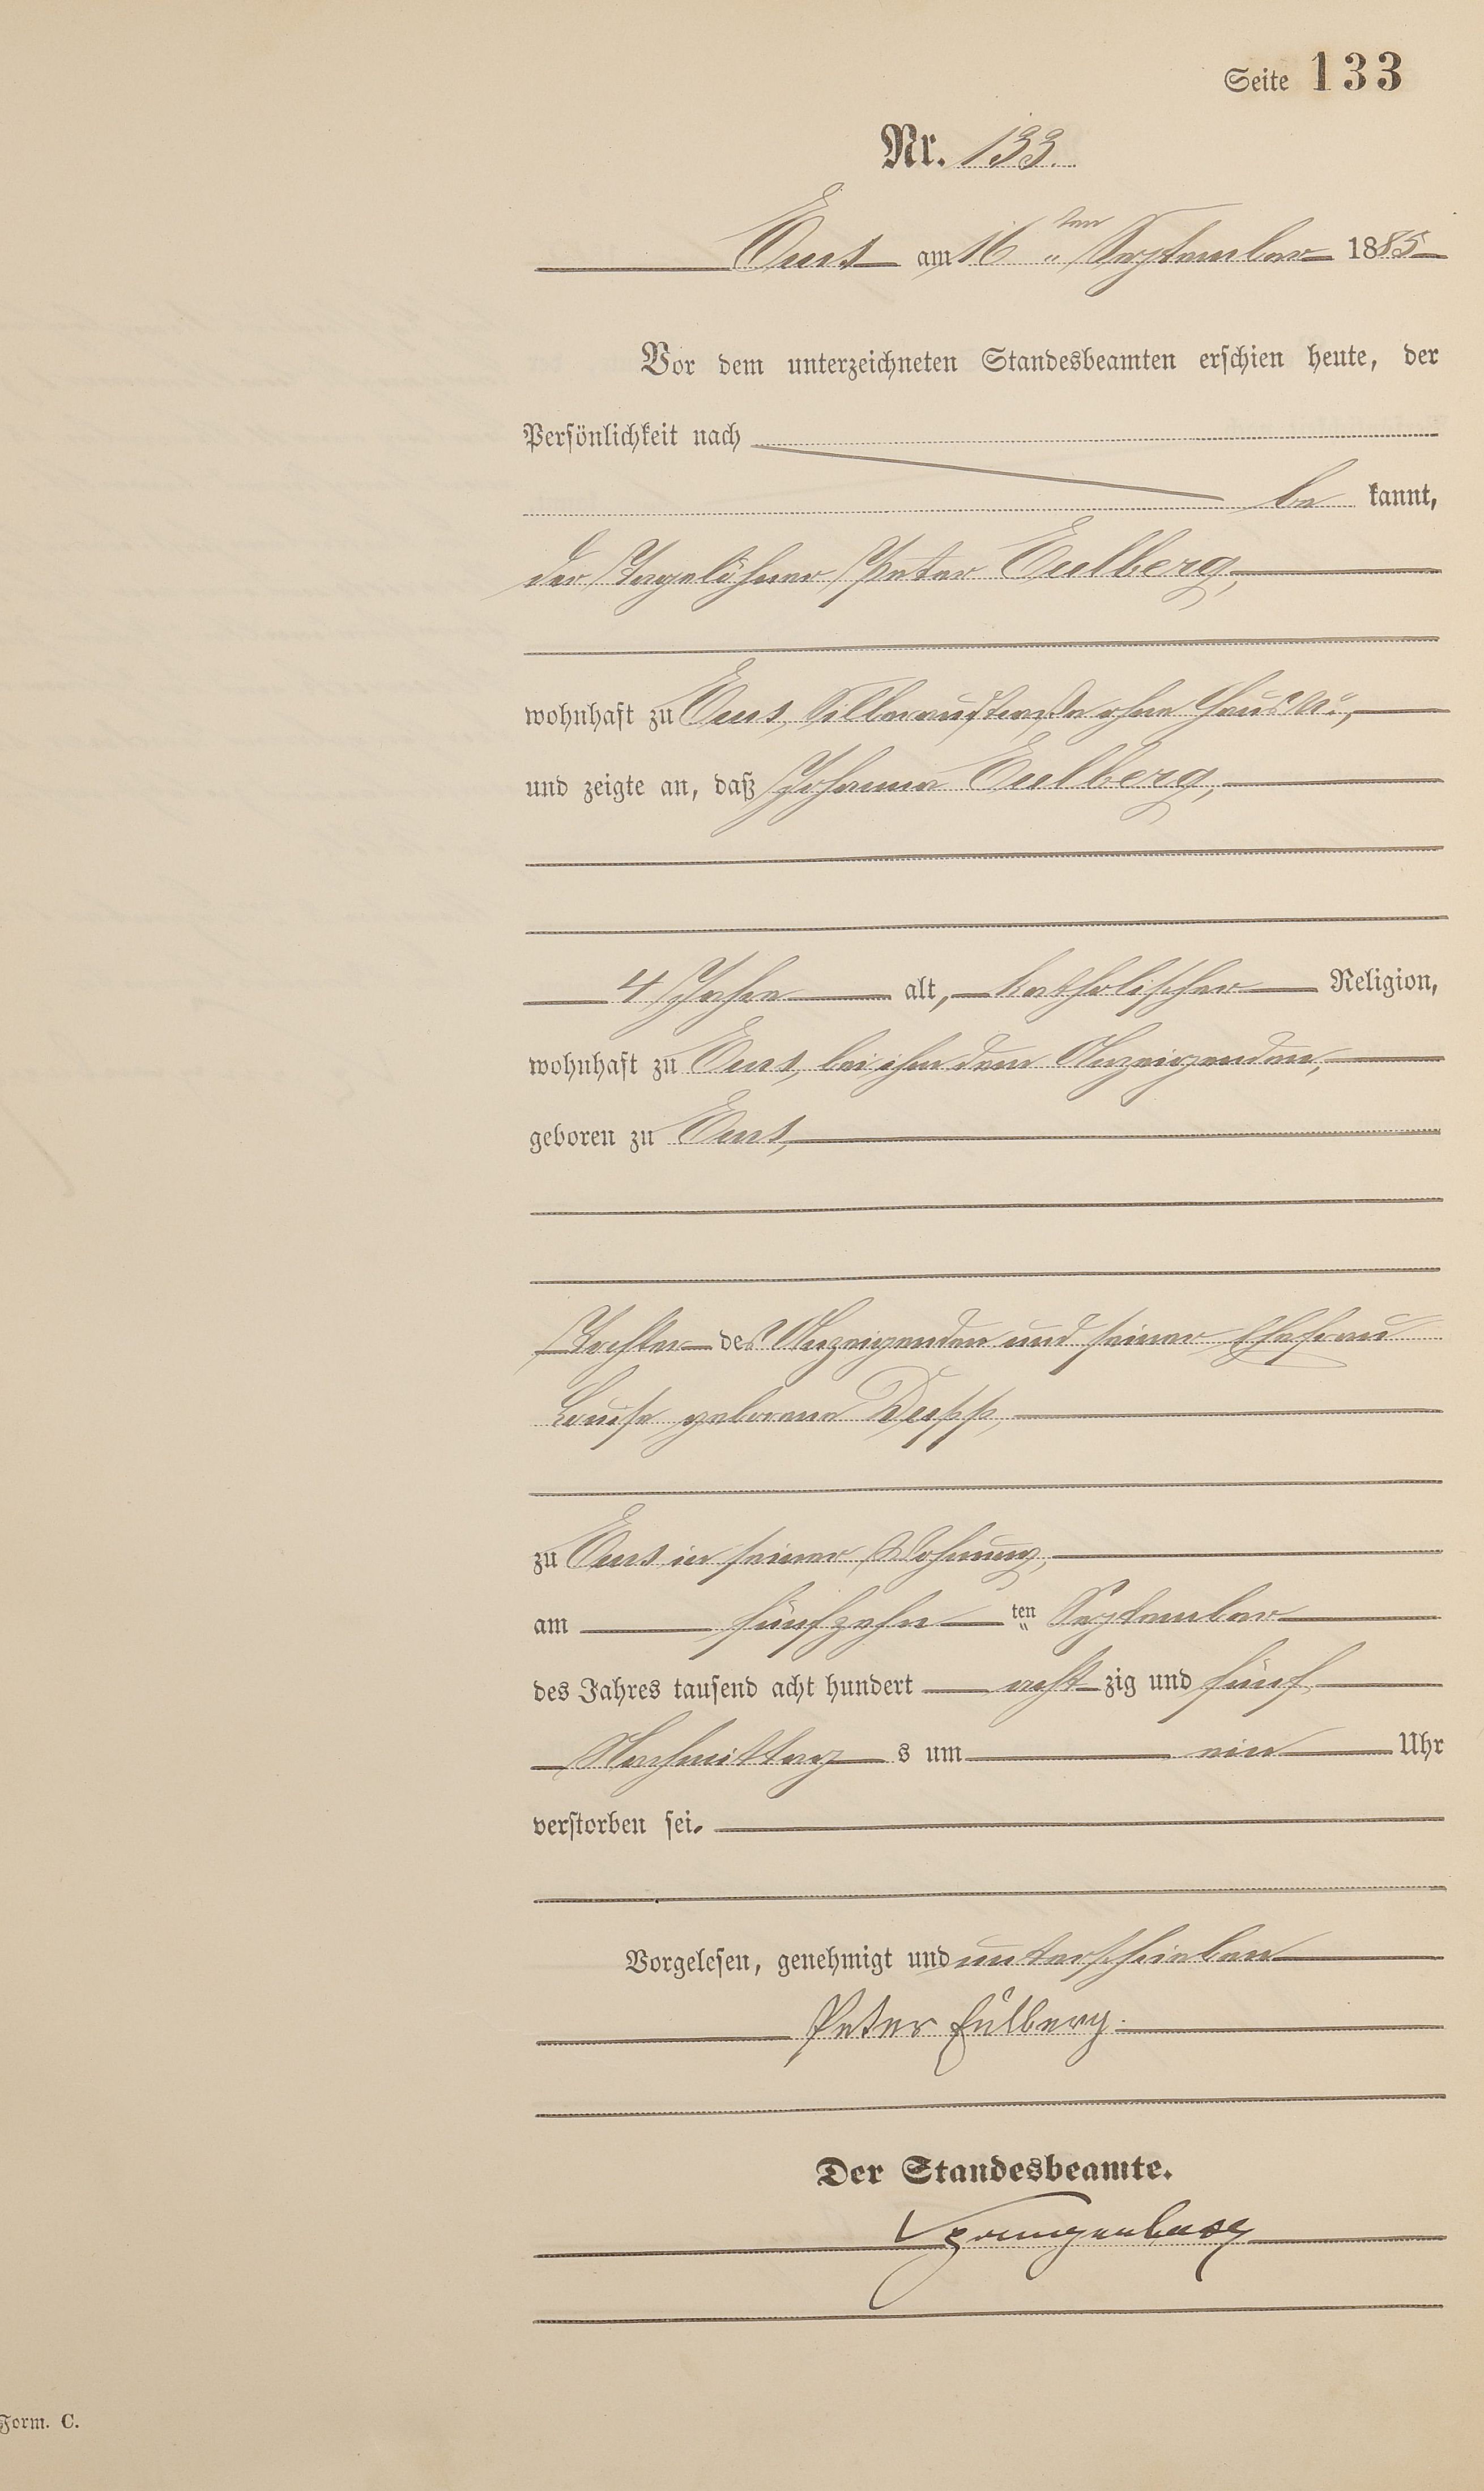 Seite 133
Nr. 133.
Ems am 16 ten September 1885
Vor dem unterzeichneten Standesbeamten erschien heute, der
Persönlichkeit nach
be kannt,
der Tagelöhner Peter Eulberg,
wohnhaft zu Ems, Silberaustraße ohne Haus No,
und zeigte an, daß Johanna Eulberg,
4 Jahre alt, katholischer Religion,
wohnhaft zu Ems, bei ihm dem Anzeigenden,
geboren zu Ems,
Tochter des Anzeigenden und seiner Ehefrau
Louise geborene
zu Ems in seiner Wohnung,
am fünfzehn ten September
des Jahres tausend acht hundert acht zig und fünf
Nachmittag s um ein Uhr
verstorben sei.
Vorgelesen, genehmigt und unterschrieben
Peter Eülberg.
Der Standesbeamte.
Form. C.